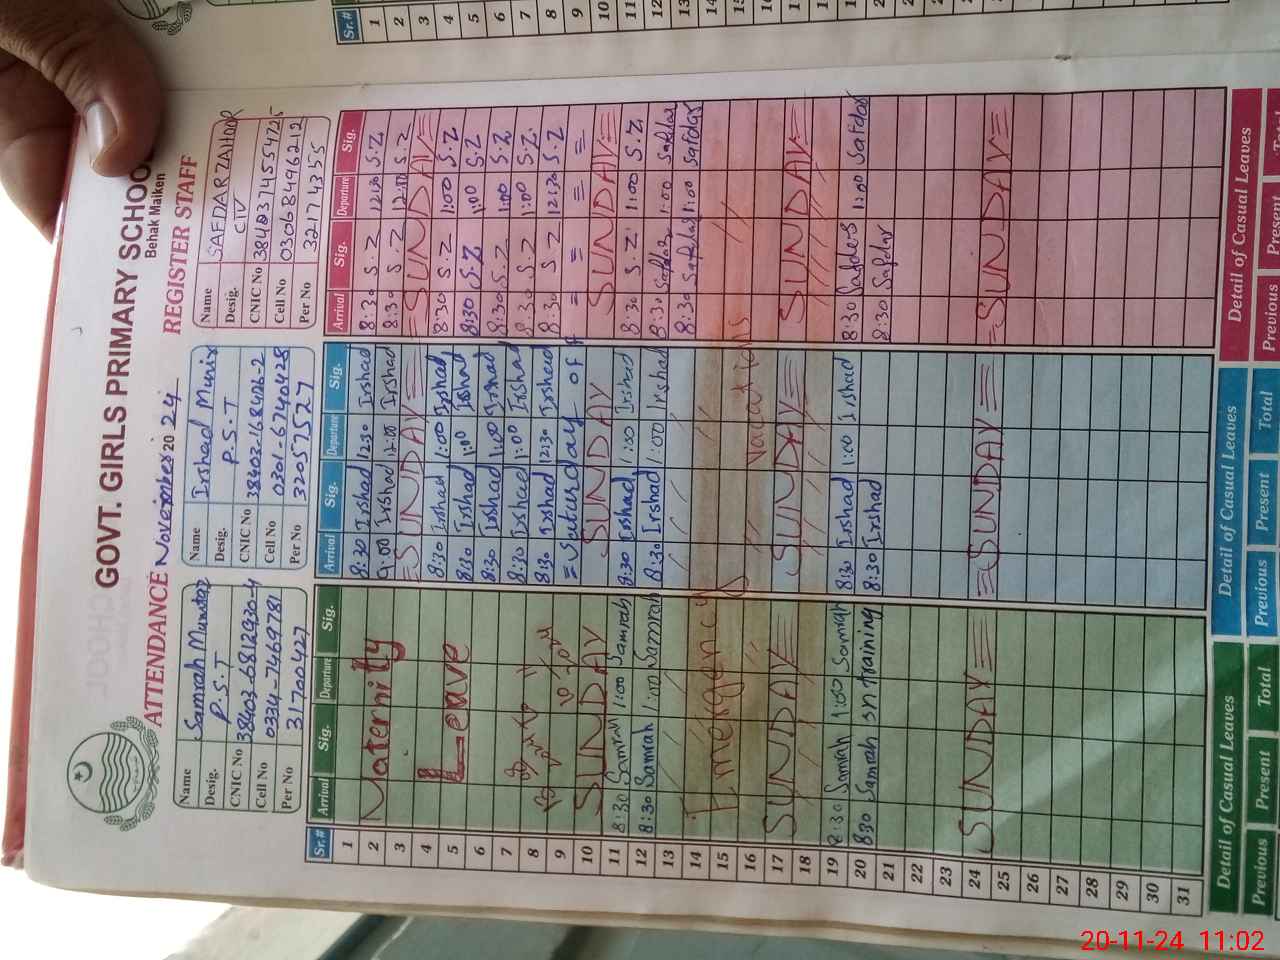 GOVT. GIRLS PRIMARY SCHOO
Behak Maiken
ATTENDANCE November 2024 REGISTER STAFF
Name Samrah Mumtaz
Desig. P.S.T
CNIC No 38403-6812930-4
Cell No 0334-7469781
Per No 31700427
Name Irshad Munir
Desig. P.S.T
CNIC No
Cell No 0301-6740428
Per No 32057527
Name SAFDAR ZAHOOR
Desig. CIV
CNIC No
Cell No 03068496212
Per No 32174355
Sr.# Arrival Sig. Departure Sig. Arrival Sig. Departure Sig. Arrival Sig. Departure Sig.
1 8:30 Irshad 12:30 Irshad 8:30 S.Z 12:30 S.Z
2 Maternity 9:00 Irshad 12:00 Irshad 8:30 S.Z S.Z
3 =SUNDAY= =SUNDAY=
4 Leave 8:30 Irshad 1:00 Irshad 8:30 S.Z 1:00 S.Z
5 8:30 Irshad 1:00 Irshad 8:30 S.Z 1:00 S.Z
6 8:30 Irshad 1:00 Irshad 8:30 S.Z 1:00 S.Z
7 8:30 Irshad 1:00 Irshad 8:30 S.Z 1:00 S.Z
8 8:30 Irshad 12:30 Irshad 8:30 S.Z 12:30 S.Z
9 = Saturday off = = = =
10 SUNDAY SUNDAY SUNDAY
11 8:30 Samrah 1:00 Samrah 8:30 Irshad 1:00 Irshad 8:30 S.Z 1:00 S.Z
12 8:30 Samrah 1:00 Samrah 8:30 Irshad 1:00 Irshad 8:30 Safdar 1:00 Safdar
13 8:30 Safdar 1:00 Safdar
14
15 Emergency Vacations
16
17 SUNDAY SUNDAY SUNDAY
18
19 8:30 Samrah 1:00 Samrah 8:30 Irshad 1:00 Irshad 8:30 Safdar 1:00 Safdar
20 8:30 Samrah on training 8:30 Irshad 8:30 Safdar
21
22
23
24 SUNDAY =SUNDAY= =SUNDAY=
25
26
27
28
29
30
31
Detail of Casual Leaves Detail of Casual Leaves Detail of Casual Leaves
Previous Present Total Previous Present Total Previous Present
Sr.#
1
2
3
4
5
6
7
8
9
10
11
12
13
20-11-24 11:02